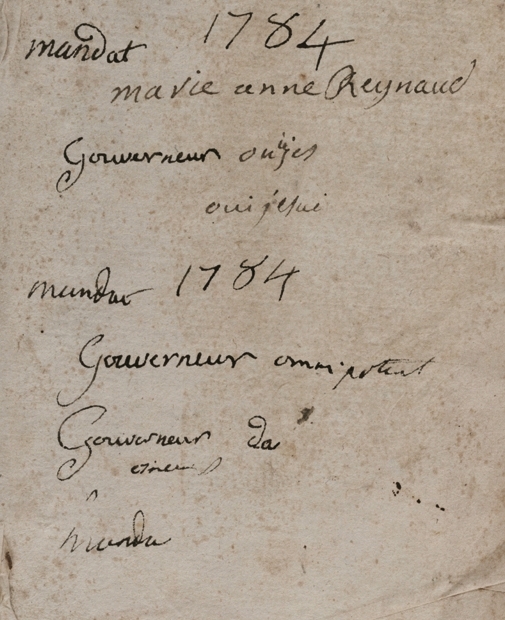 1784
mandat
marie anne Reynaud
Gouverneur
oui je sui
mandat 1784
Gouverneur omnipotent
Gouverneur da
manda